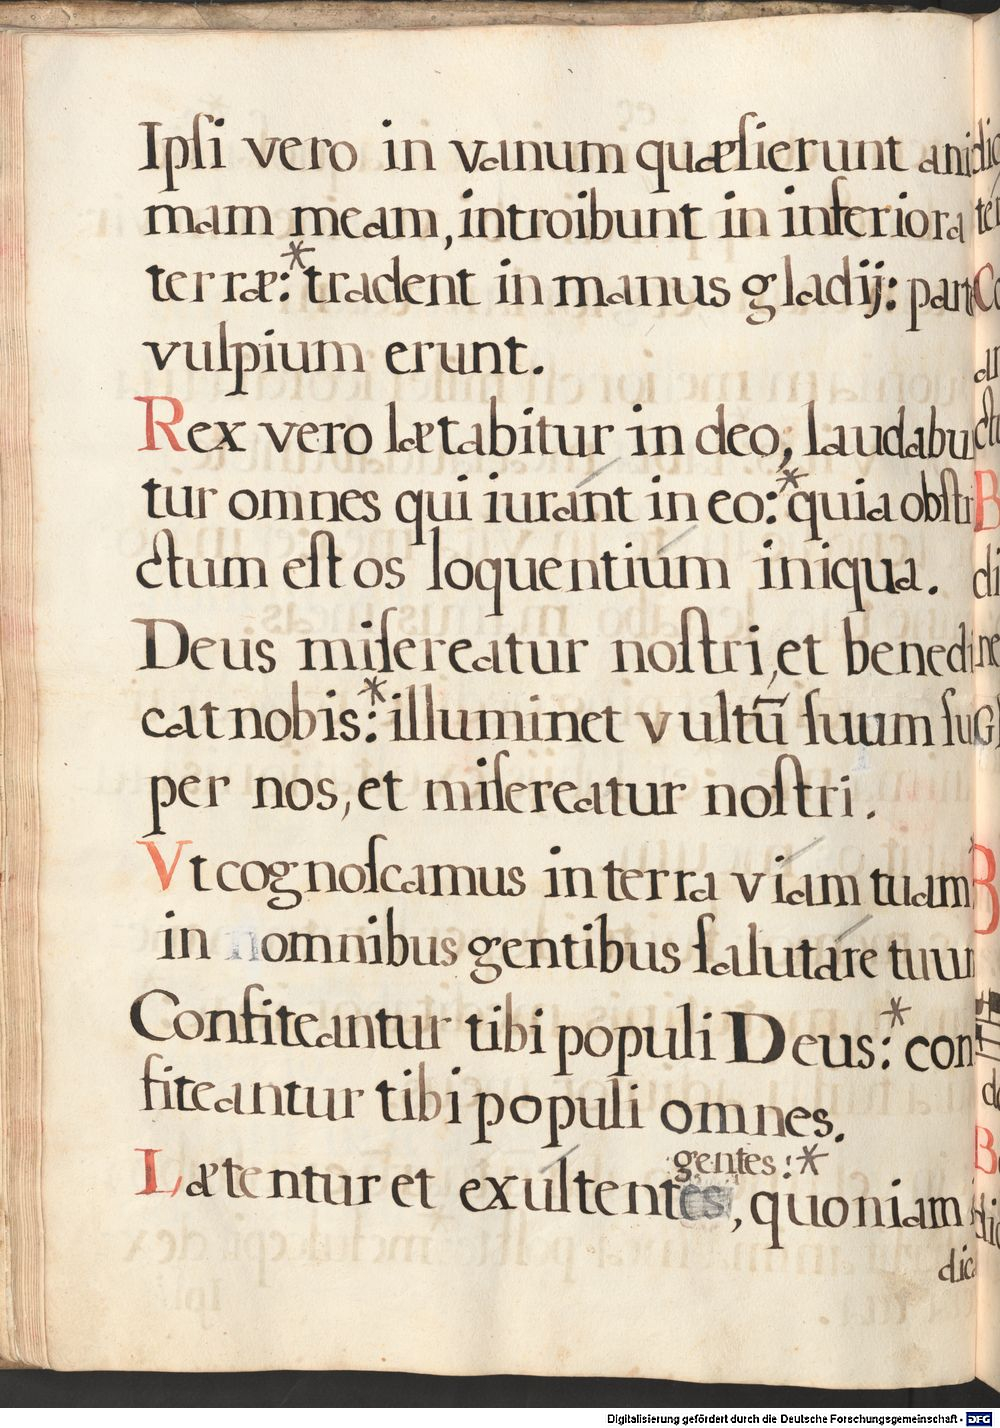 Ipſi vero in vanum quæſierunt ani
mam meam, introibunt in inferiora
terræ:* tradent in manus gladij: part
vulpium erunt.
Rex vero lætabitur in deo, laudabu
tur omnes qui iuránt in eo:* quia obſtri
ctum eſt os loquentiúm iniqua.
Deus miſereatur noſtri, et benedi
cat nobis:* illuminet vultū ſuum ſu
per nos, et miſereatur noſtri.
Vt cognoſcamus in terra víam tuam
in omnibus gentibus ſalutáre tuu
Confiteantur tibi populi Deus:* con
fiteantur tibi populi omnes.
gentes:*
Lætentur et exúltent, quoniam
dic
Digitalisierung gefördert durch die Deutsche Forschungsgemeinschaft - DFG